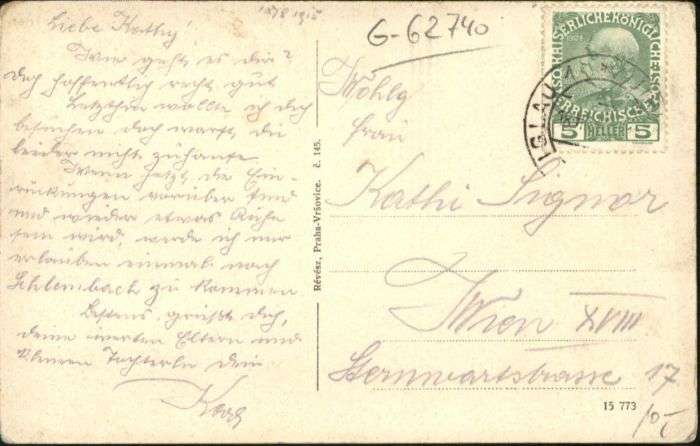 Liebe Kathy!
Wie geht es dir?
Doch hoffentlich recht gut
Letzthin wollte ich dich
besuchen doch warst du
leider nicht zuhause.
Wenn jetzt die Ein-
rückungen vorüber sind
und wieder etwas Ruhe
sein wird, werde ich mir
erlauben einmal nach
zu kommen
Bestens grüßt dich,
deine werten Eltern und
kleinen Tochterln dein
1878 1915
G-62740
Révész, Praha-Vršovice. č. 145.
KAISERLICHE KÖNIGLICHE ÖSTERREICHISCHE
5 HELLER 5
IGLAU
Wohlg
Frau
Kathi
Wien XVIII
Sternwartstrasse 17
15 773